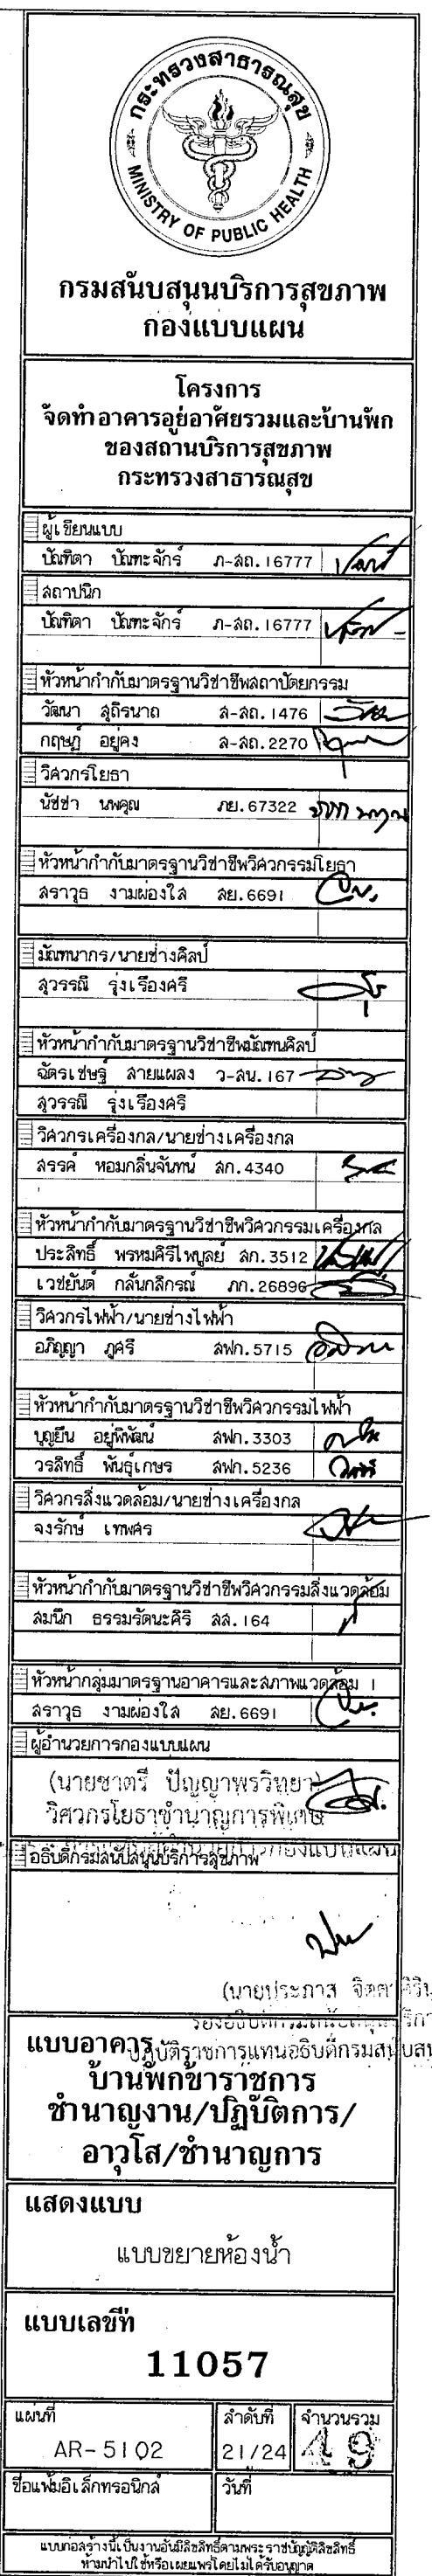 กระทรวงสาธารณสุข
MINISTRY OF PUBLIC HEALTH
กรมสนับสนุนบริการสุขภาพ
กองแบบแผน
โครงการ
จัดทำอาคารอยู่อาศัยรวมและบ้านพัก
ของสถานบริการสุขภาพ
กระทรวงสาธารณสุข
ผู้เขียนแบบ
บัณฑิตา บัณฑะจักร์ ภ-สถ.16777
สถาปนิก
บัณฑิตา บัณฑะจักร์ ภ-สถ.16777
หัวหน้ากำกับมาตรฐานวิชาชีพสถาปัตยกรรม
วัฒนา สุถิรนาถ ส-สถ.1476
กฤษฎ์ อยู่คง ส-สถ.2270
วิศวกรโยธา
นัชชา นพคุณ ภย.67322
หัวหน้ากำกับมาตรฐานวิชาชีพวิศวกรรมโยธา
สราวุธ งามผ่องใส สย.6691
มัณฑนากร/นายช่างศิลป์
สุวรรณี รุ่งเรืองศรี
หัวหน้ากำกับมาตรฐานวิชาชีพมัณฑนศิลป์
ฉัตรเชษฐ์ สายแผลง ว-สน.167
สุวรรณี รุ่งเรืองศรี
วิศวกรเครื่องกล/นายช่างเครื่องกล
สรรค์ หอมกลิ่นจันทน์ สก.4340
หัวหน้ากำกับมาตรฐานวิชาชีพวิศวกรรมเครื่องกล
ประสิทธิ์ พรหมคิรีไพบูลย์ สก.3512
เวชยันต์ กลั่นกสิกรณ์ ภก.26896
วิศวกรไฟฟ้า/นายช่างไฟฟ้า
อภิญญา ภูศรี สฟก.5715
หัวหน้ากำกับมาตรฐานวิชาชีพวิศวกรรมไฟฟ้า
บุญยืน อยู่พิพัฒน์ สฟก.3303
วรสิทธิ์ พันธุ์เกษร สฟก.5236
วิศวกรสิ่งแวดล้อม/นายช่างเครื่องกล
จงรักษ์ เทพศร
หัวหน้ากำกับมาตรฐานวิชาชีพวิศวกรรมสิ่งแวดล้อม
สมนึก ธรรมรัตนะคิริ สส.164
หัวหน้ากลุ่มมาตรฐานอาคารและสภาพแวดล้อม 1
สราวุธ งามผ่องใส สย.6691
ผู้อำนวยการกองแบบแผน
(นายชาตรี ปัญญาพรวิทยา)
วิศวกรโยธาชำนาญการพิเศษ
อธิบดีกรมสนับสนุนบริการสุขภาพ
(นายประภาส
ปฏิบัติราชการแทนอธิบดีกรมสนับสน
แบบอาคาร
บ้านพักข้าราชการ
ชำนาญงาน/ปฏิบัติการ/
อาวุโส/ชำนาญการ
แสดงแบบ
แบบขยายห้องน้ำ
แบบเลขที่
11057
แผ่นที่ ลำดับที่ จำนวนรวม
AR-5102 21/24 49
ชื่อแฟ้มอิเล็กทรอนิกส์ วันที่
แบบก่อสร้างนี้เป็นงานอันมีลิขสิทธิ์ตามพระราชบัญญัติลิขสิทธิ์
ห้ามนำไปใช้หรือเผยแพร่โดยไม่ได้รับอนุญาต